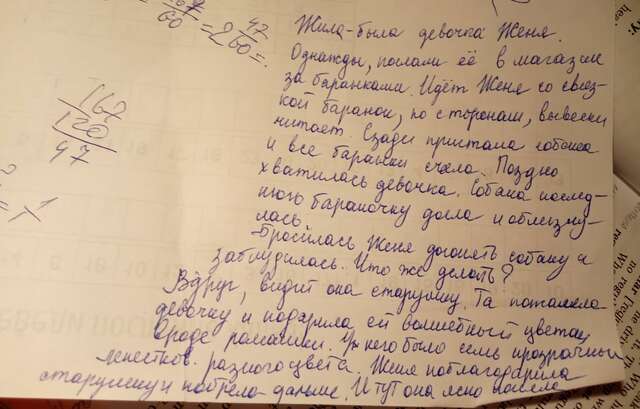 167
60
= 2 47
60 =
167
120
47
= 1
Жила-была девочка Женя.
Однажды, послали её в магазин
за баранками. Идёт Женя со связ-
кой баранок, по сторонам, вывески
читает. Сзади пристала собака
и все баранки съела. Поздно
хватилась девочка. Собака послед-
нюю бараночку доела и облизну-
лась.
Бросилась Женя догонять собаку и
заблудилась. Что же делать?
Вдруг, видит она старушку. Та пожалела
девочку и подарила ей волшебный цветок
вроде ромашки. У него было семь прозрачных
лепестков. разного цвета. Женя поблагодарила
старушку и побрела дальше. И тут она ясно